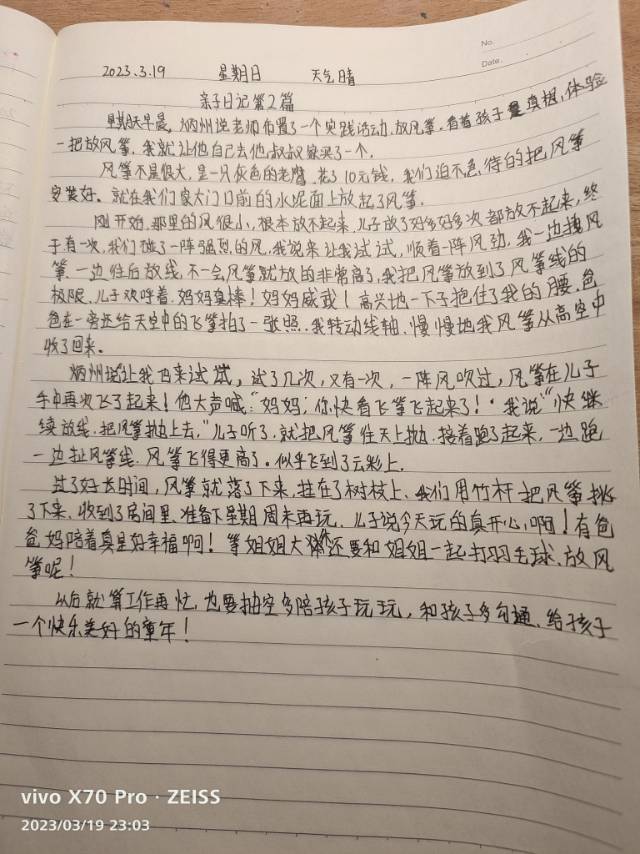 No.
Date.
2023.3.19 星期日 天气晴
亲子日记第2篇
早期天早晨，炳州说老师布置了一个实践活动，放风筝，看着孩子要填极，体验
一把放风筝，我就让他自己去他叔叔家买了一个。
风筝不是很大，是一只灰色的老鹰，花了10元钱，我们迫不急待的把风筝
安装好，就在我们家大门口前的水泥面上放起了风筝。
刚开始，那里的风很小，根本放不起来，儿子放了好多好多次都放不起来，终
于有一次，我们碰了一阵强烈的风，我说来让我试试，顺着一阵风劲，我一边拽风
筝，一边往后放线，不一会风筝就放的非常高了，我把风筝放到了风筝线的
极限，儿子欢呼着，妈妈真棒！妈妈威武！高兴地一下子抱住了我的腰，爸
爸在一旁还给天空中的飞筝拍了一张照，我转动线轴，慢慢地我风筝从高空中
收了回来。
炳州说让我再来试试，试了几次，又有一次，一阵风吹过，风筝在儿子
手中再次飞了起来！他大声喊，“妈妈；你快看飞筝飞起来了！”我说“快继
续放线，把风筝抛上去，”儿子听了，就把风筝往天上抛，接着跑了起来，一边跑
一边扯风筝线，风筝飞得更高了，似乎飞到了云彩上。
过了好长时间，风筝就落了下来，挂在了树枝上，我们用竹杆把风筝挑
了下来，收到了房间里，准备下早期周末再玩，儿子说今天玩的真开心，啊！有爸
爸妈陪着真是好幸福啊！等姐姐大休还要和姐姐一起打羽毛球、放风
筝呢！
以后就算工作再忙，也要抽空多陪孩子玩玩，和孩子多勾通，给孩子
一个快乐美好的童年！
vivo X70 Pro · ZEISS
2023/03/19 23:03